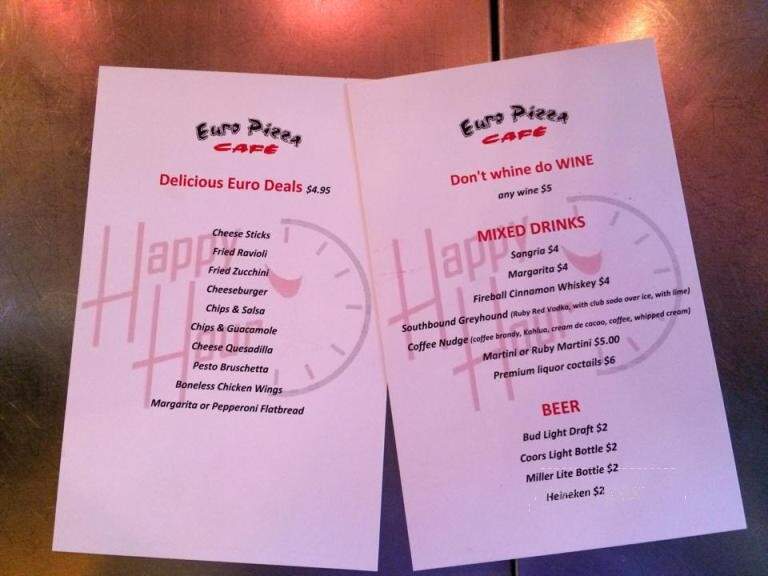 Euro Pizza
CAFÉ
Delicious Euro Deals $4.95
Happy
Hour
Cheese Sticks
Fried Ravioli
Fried Zucchini
Cheeseburger
Chips & Salsa
Chips & Guacamole
Cheese Quesadilla
Pesto Bruschetta
Boneless Chicken Wings
Margarita or Pepperoni Flatbread
Euro Pizza
CAFÉ
Don't whine do WINE
any wine $5
Happy
Hour
MIXED DRINKS
Sangria $4
Margarita $4
Fireball Cinnamon Whiskey $4
Southbound Greyhound (Ruby Red Vodka, with club soda over ice, with lime)
Coffee Nudge (coffee brandy, Kahlua, cream de cacao, coffee, whipped cream)
Martini or Ruby Martini $5.00
Premium liquor coctails $6
BEER
Bud Light Draft $2
Coors Light Bottle $2
Miller Lite Bottie $2
Heineken $2